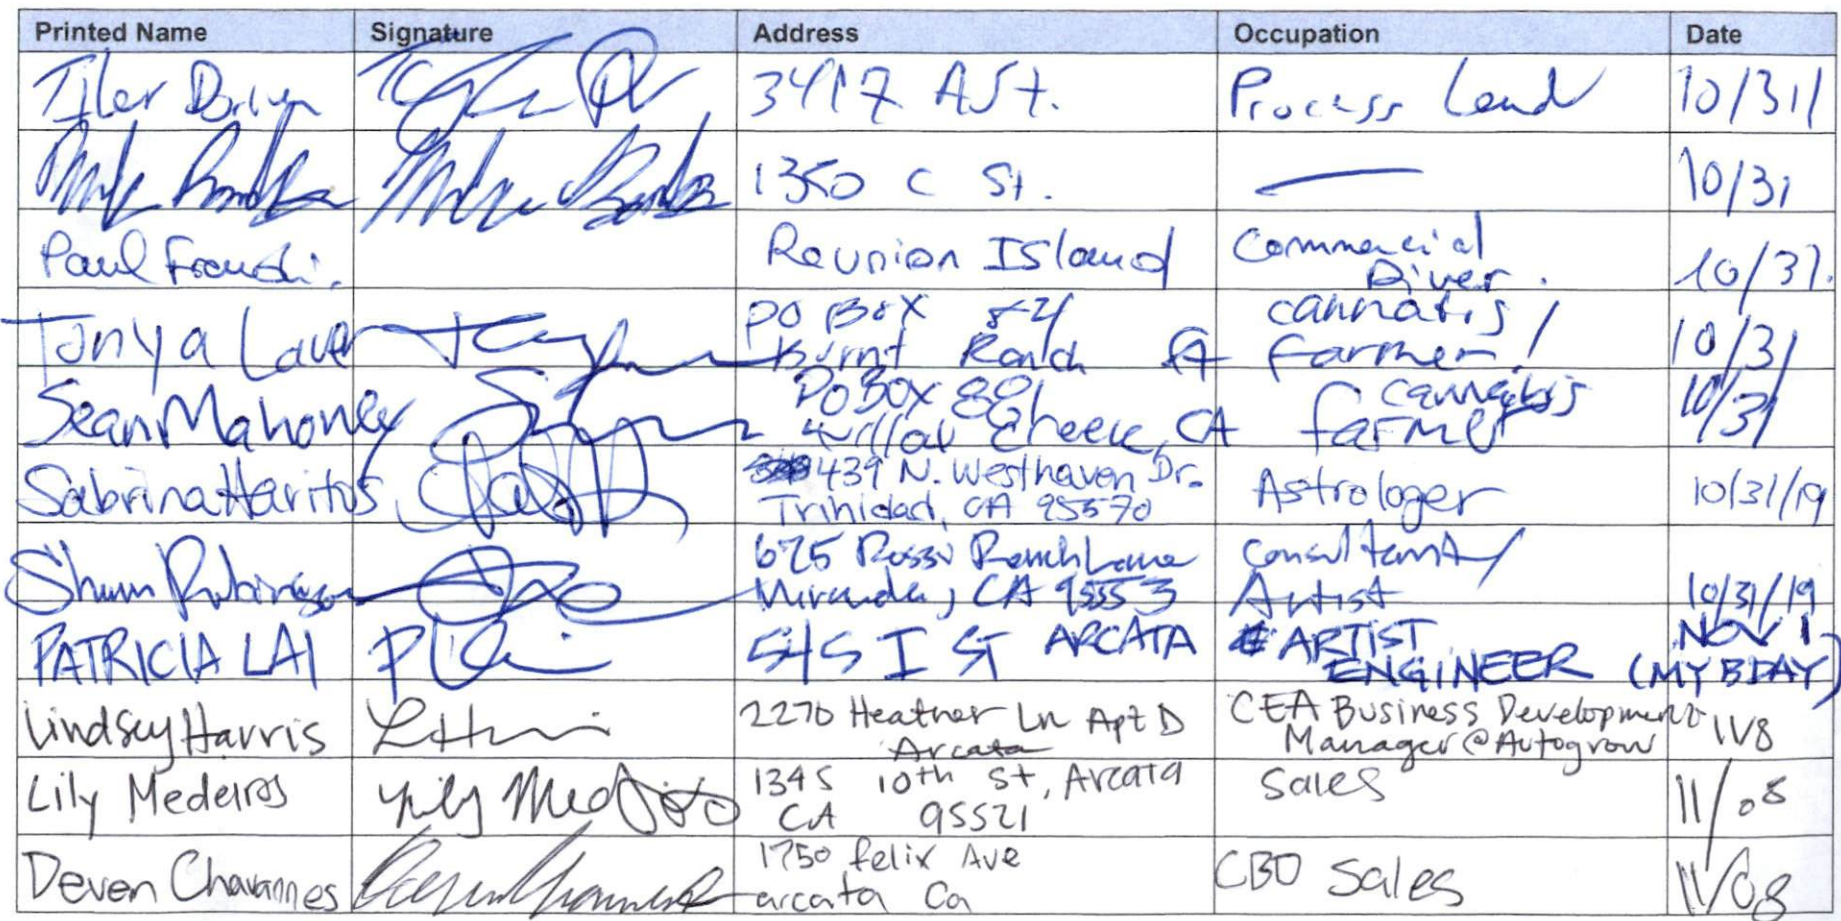 Printed Name Signature Address Occupation Date
Tiler 3417 A St. Process Lead 10/31
1350 C St. — 10/31
Paul Reunion Island Commercial Diver. 10/31.
Tonya Laver PO Box 
Burnt Ranch CA cannabis / farmer! 10/31
Sean Mahoney PO Box 
Creek, CA cannabis farmer 10/31
Sabrina Haritos 439 N. Westhaven Dr.
Trinidad, CA 95570 Astrologer 10/31/19
675 Rossi Ranch Lane
Miranda, CA 95553 Consultant/
Artist 10/31/19
PATRICIA LAI 545 I ST ARCATA ARTIST
ENGINEER NOV 1
(MY BDAY)
Lindsey Harris 2270 Heather Ln Apt D
Arcata CEA Business Development
Manager @ Autogrow 11/8
Lily Medeiros Lily 1345 10th St, Arcata
CA 95521 Sales 11/08
Deven Chavannes 1750 Felix Ave
arcata Ca CBD Sales 11/08